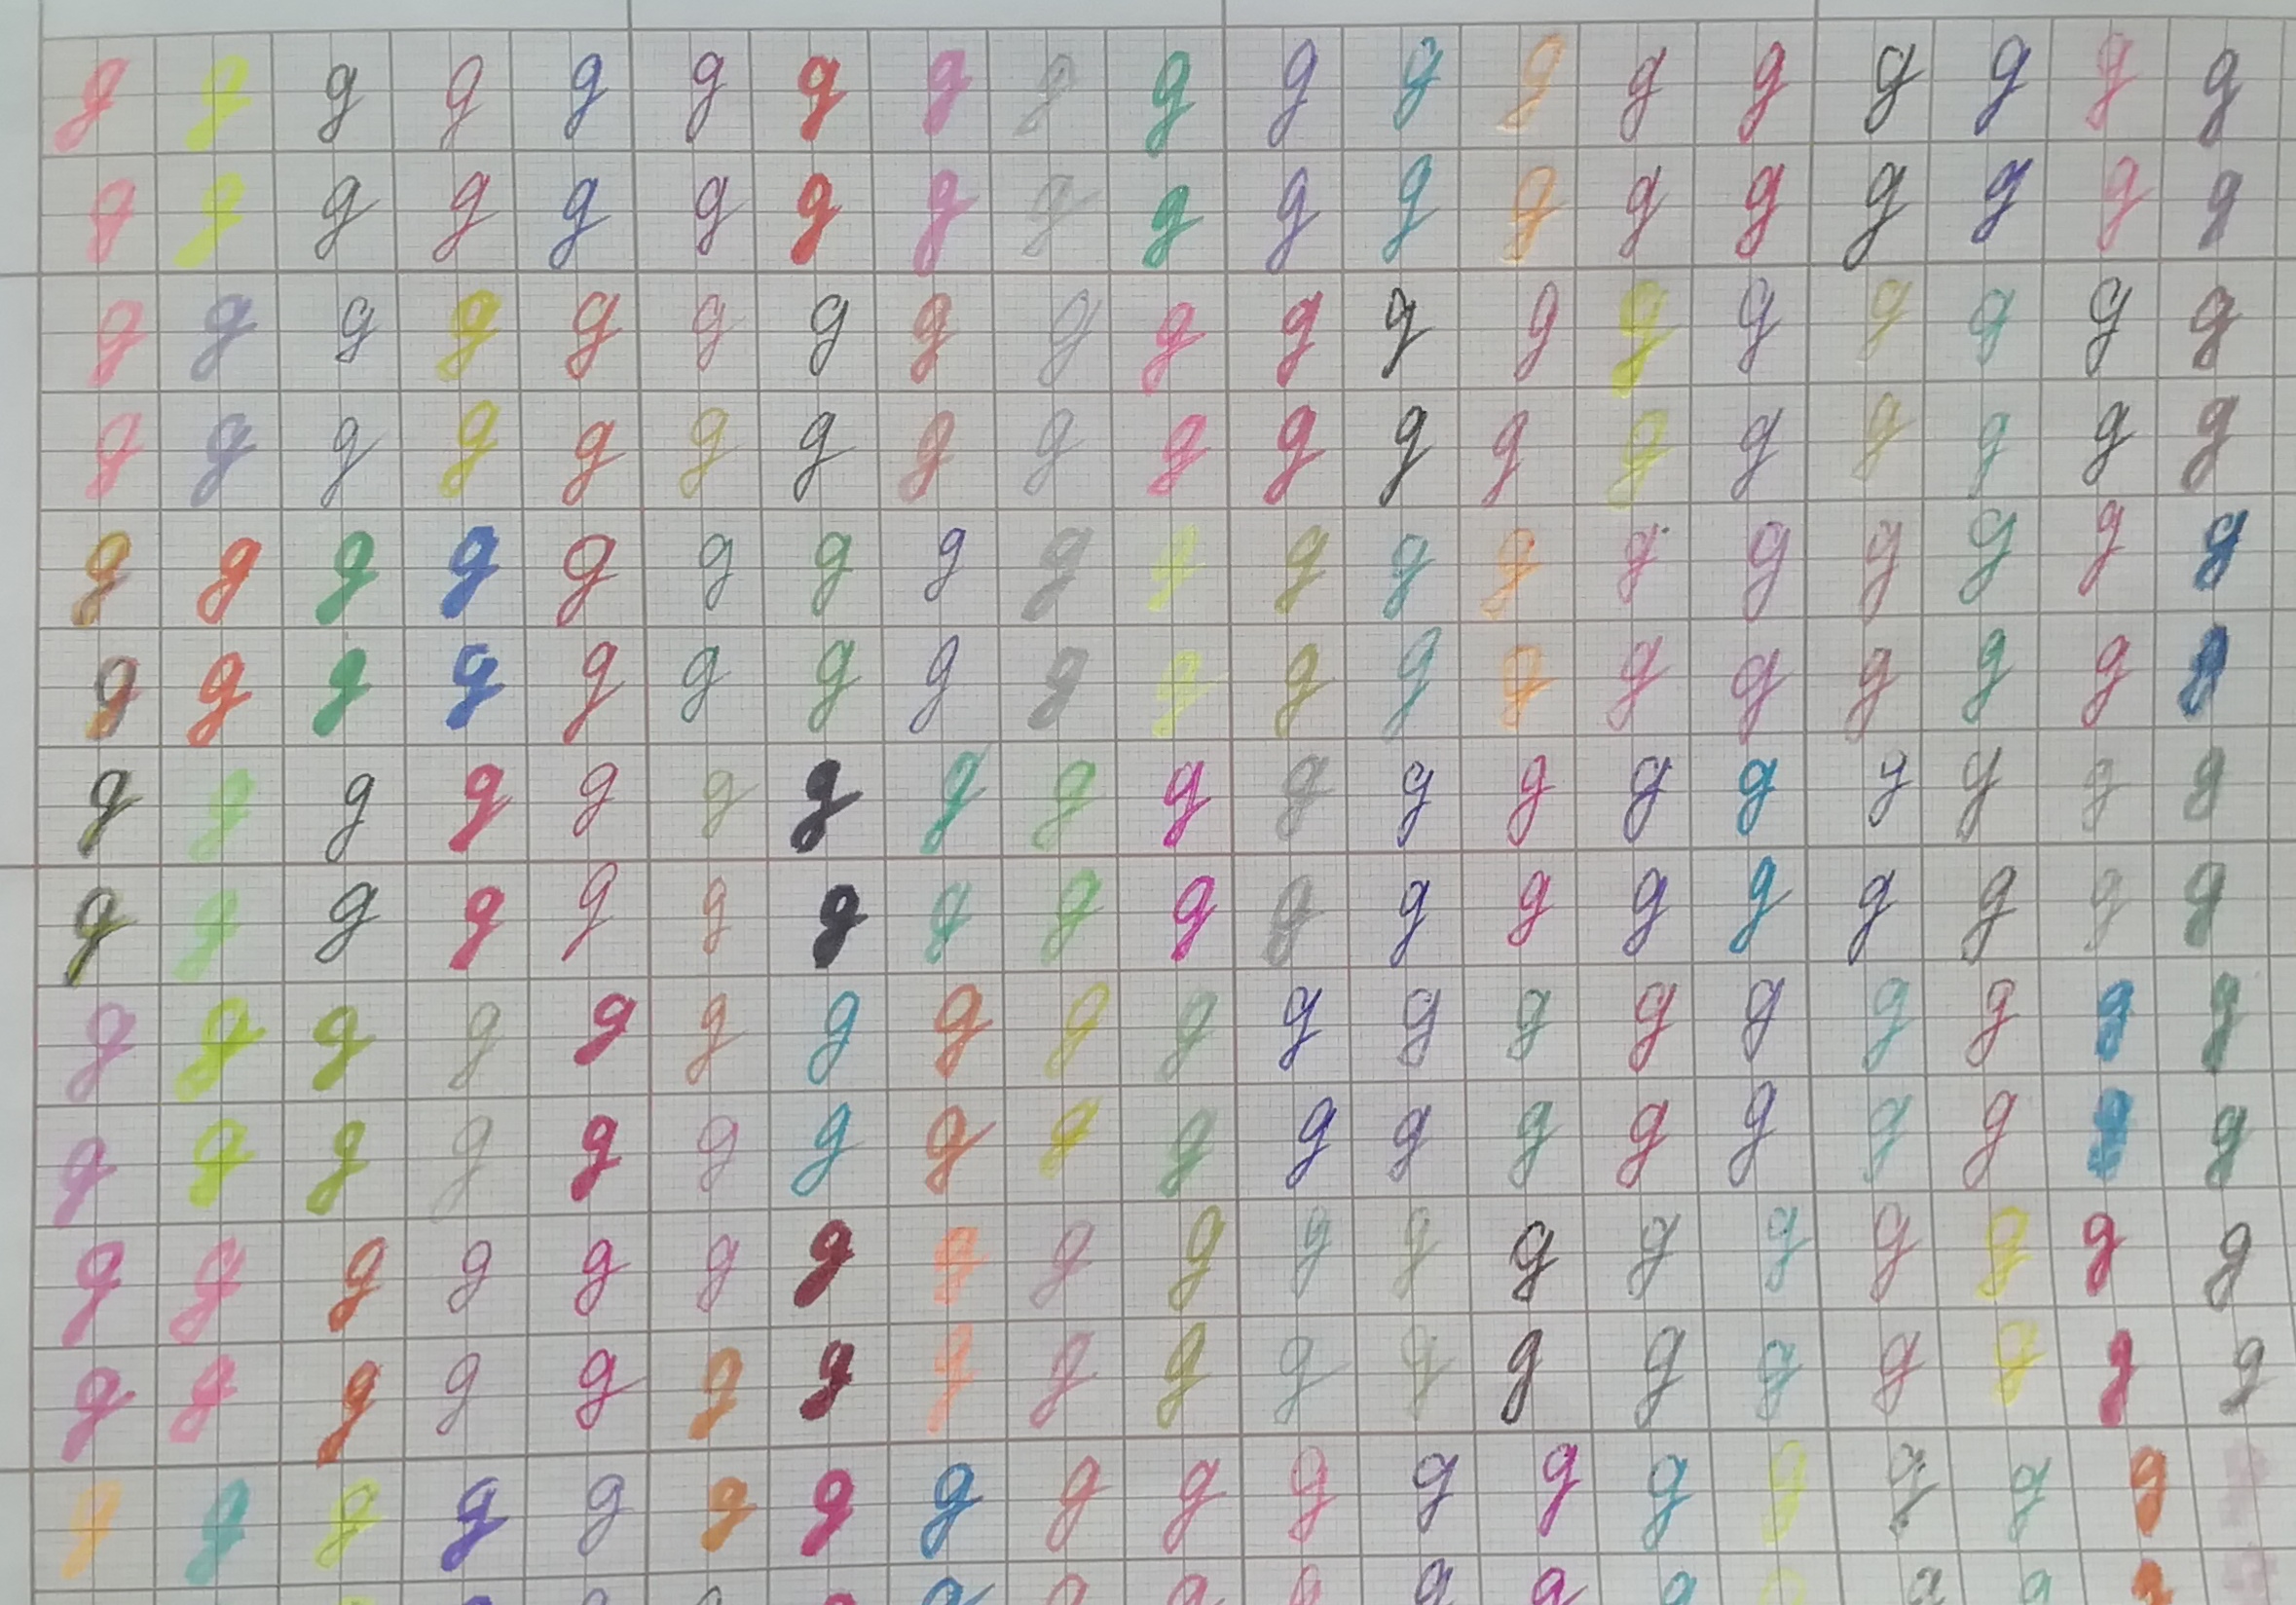 g g g g g g g g g g g g g g g g g g g
g g g g g g g g g g g g g g g g g g g
g g g g g g g g g g g g g g g g g g g
g g g g g g g g g g g g g g g g g g g
g g g g g g g g g g g g g g g g g g g
g g g g g g g g g g g g g g g g g g g
g g g g g g g g g g g g g g g g g g g
g g g g g g g g g g g g g g g g g g g
g g g g g g g g g g g g g g g g g g g
g g g g g g g g g g g g g g g g g g g
g g g g g g g g g g g g g g g g g g g
g g g g g g g g g g g g g g g g g g g
g g g g g g g g g g g g g g g g g g